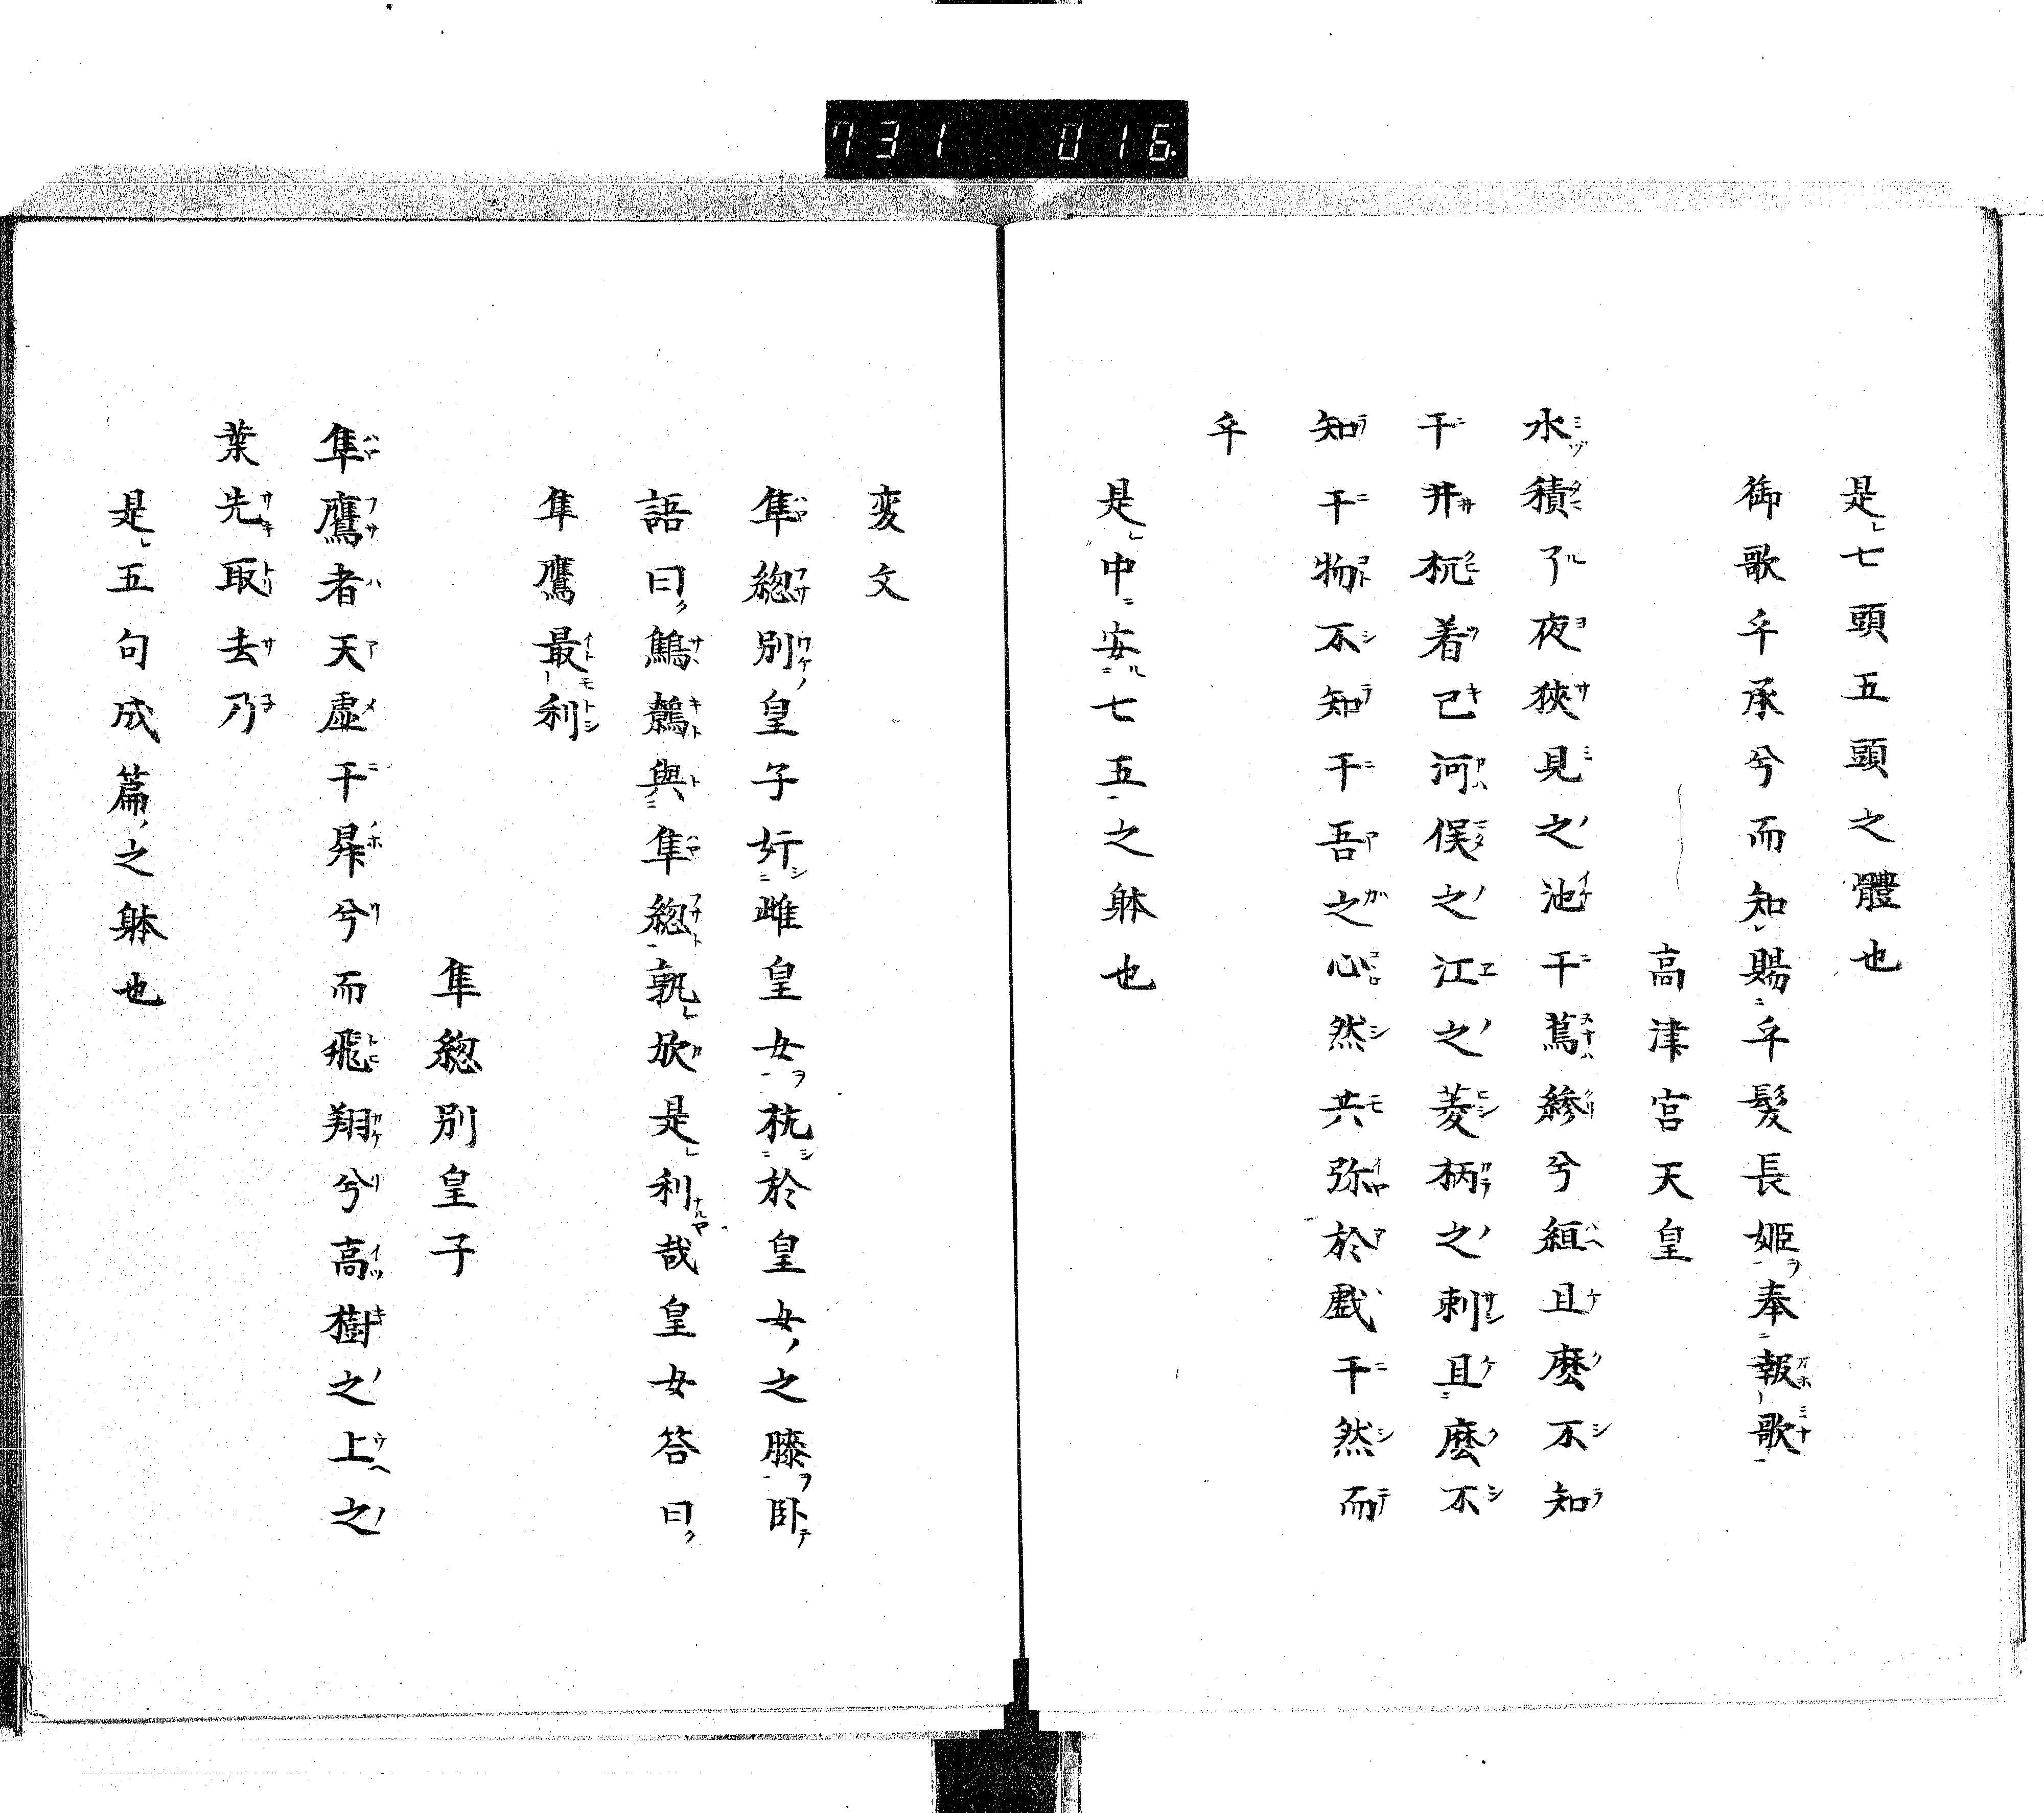 731 016
是七頭五頭之體也
御歌乎承兮而知賜乎髪長姫奉報歌
高津宮天皇
水積了夜狹見之池干蔿縿兮絙且麽不知
干丼杭着己河俣之江之菱柄之刺且麽不
知干物不知干吾之心然共弥於戯干然而
乎
是中安七五之躰也
変文
隼總別皇子奸雌皇女枕於皇女之膝臥
語曰鷦鷯與隼總孰放是利哉皇女答曰
隼鷹最利
隼總別皇子
隼鷹者天虚干昇兮而飛翔兮高樹之上之
葉先取去乃
是五句成篇之躰也